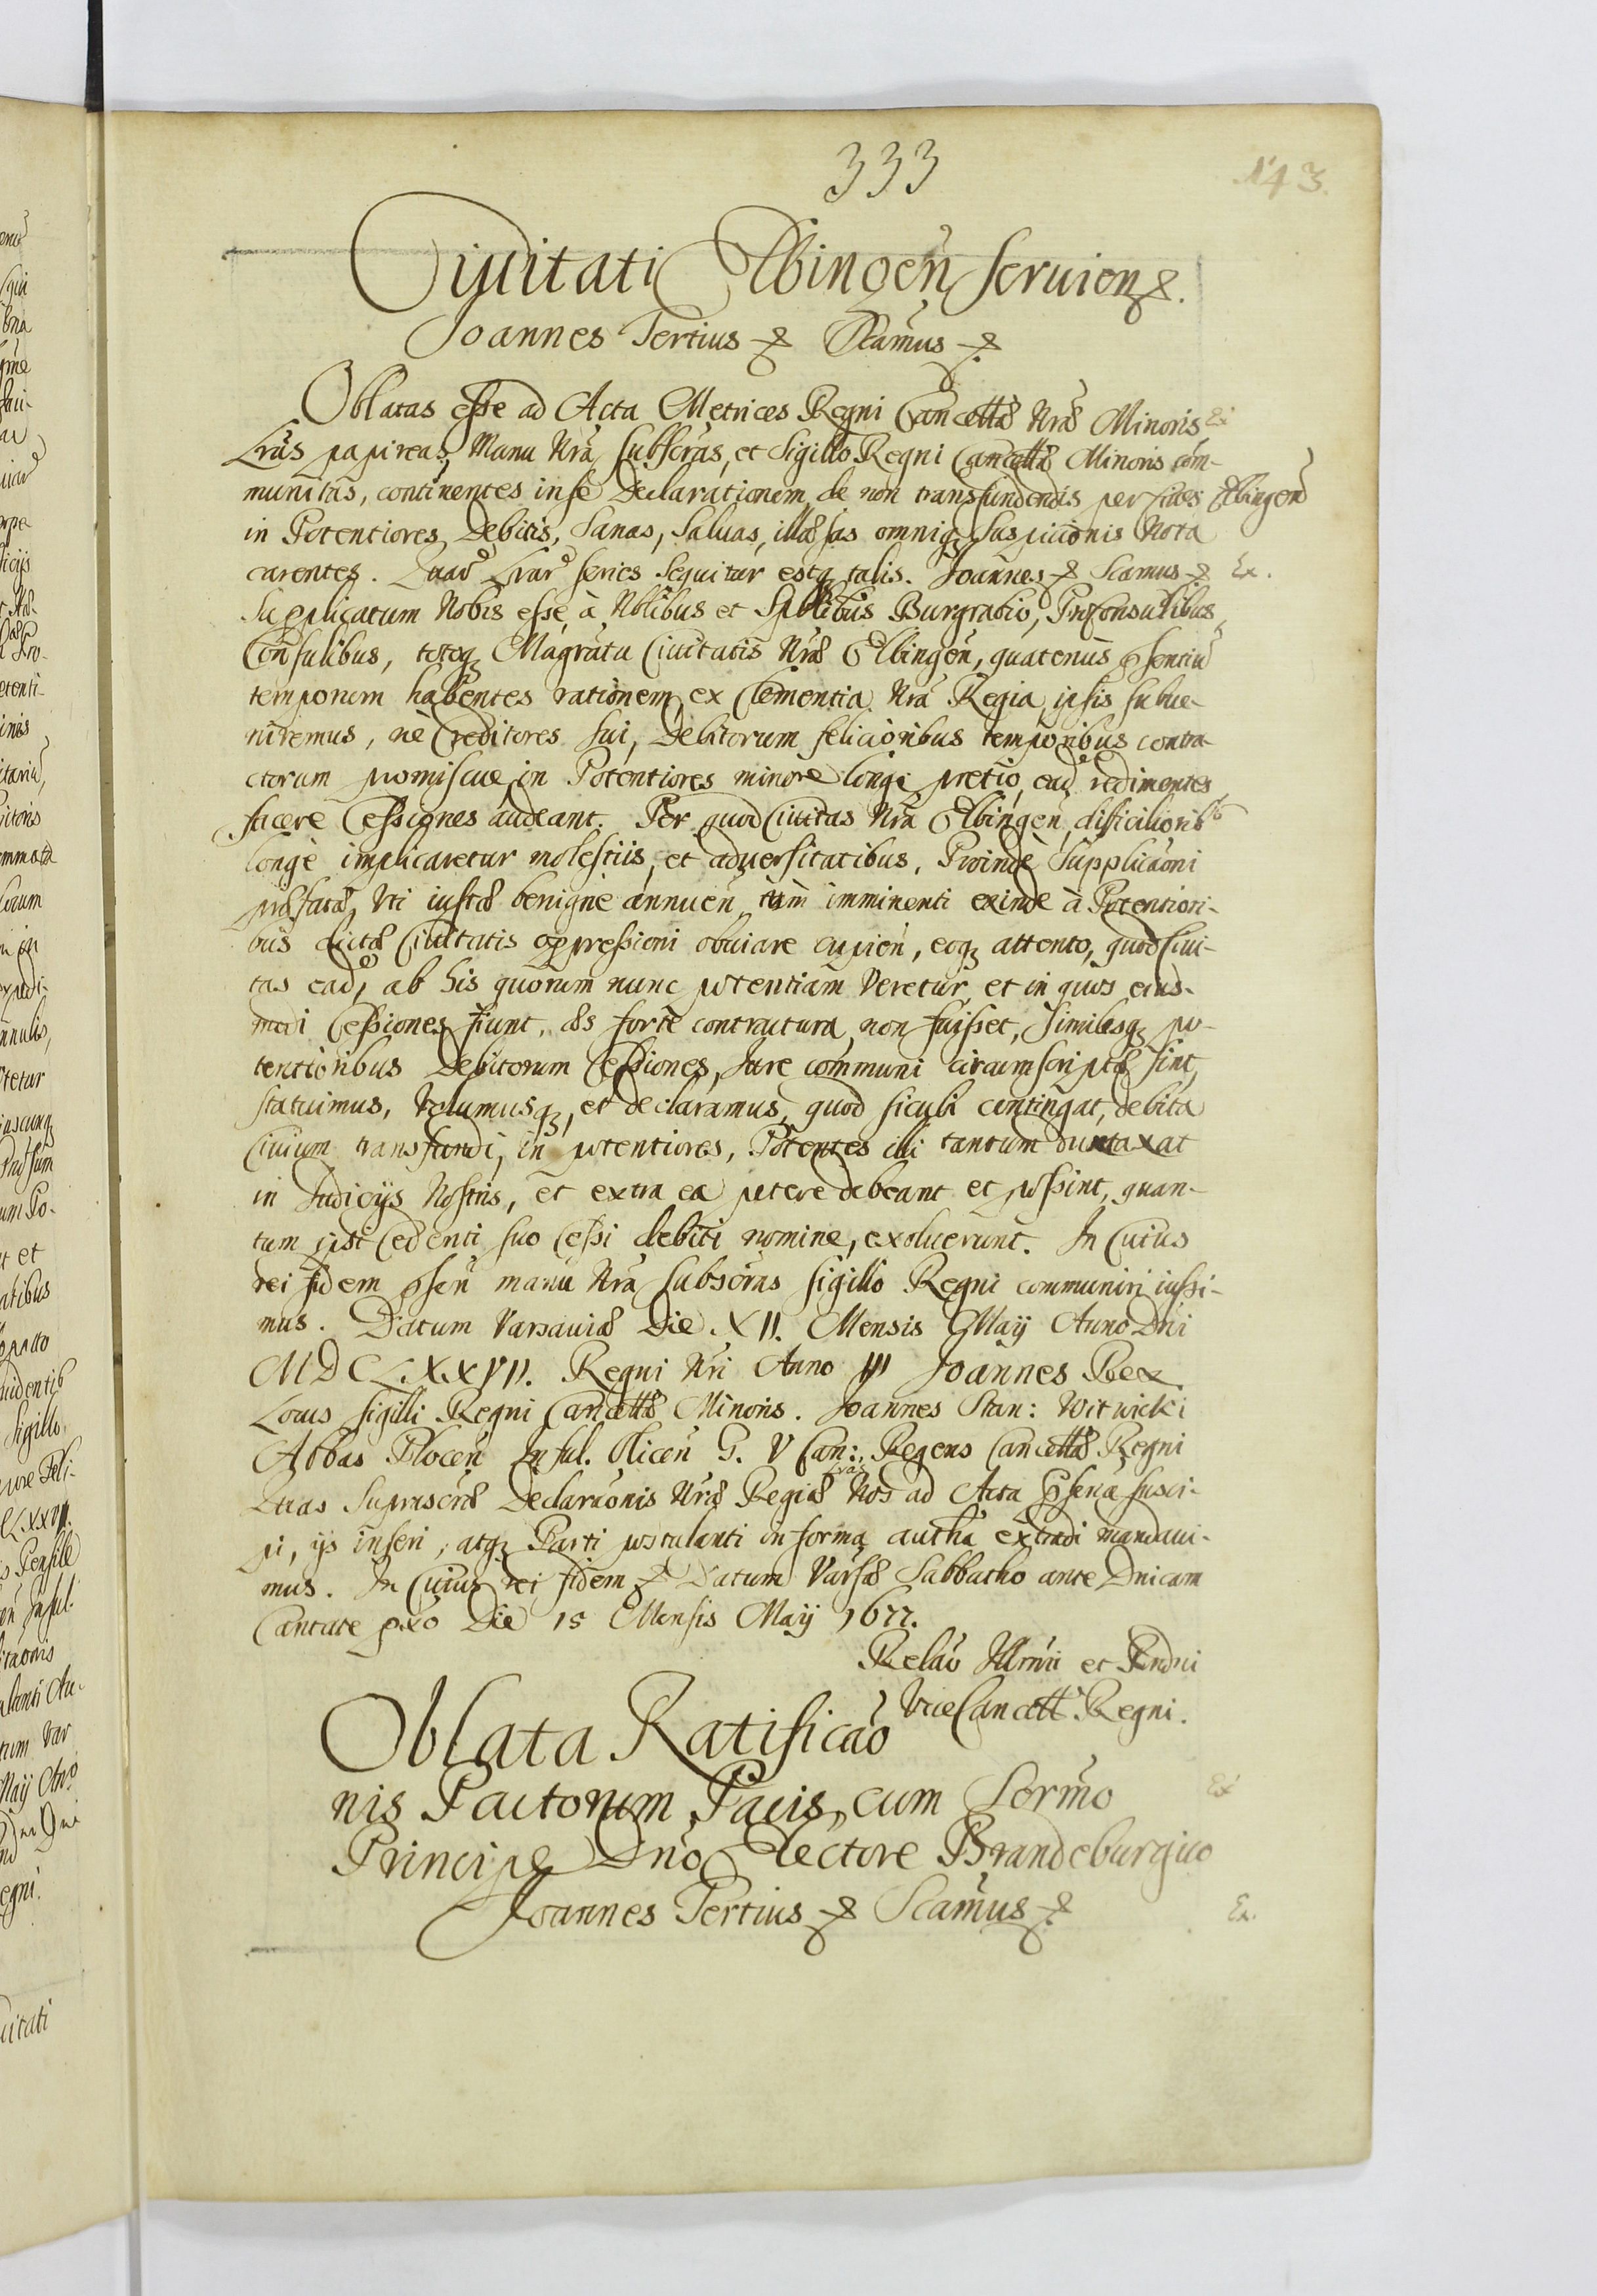 333
143.
Civitati Elbingen̄ seruien etc.
Joannes Tertius etc Scamus etc
Oblatas esse ad Acta Metrices Regni Cancellæ Nræ Minoris
Lrās papireas, Manu Nrā subscrās, et Sigillo Regni Cancellæ Minoris com-
munitās, continentes in se Declarationem de non transfundendis per Ciues Elbingen̄
in Potentiores Debitis, Sanas, Saluas, illæsas omniq; suspicionis Nota
carentes. Quar Lrar series sequitur estq; talis. Joannes etc Scamus etc
Supplicatum Nobis esse, à Nblibus et Spblibus Burgrabio, Præconsulibus,
Consulibus, totoq; Magrātu Ciuitatis Nræ Elbingen̄, quatenus pñsentiū
temporum habentes rationem, ex Clementia Nrā Regia, ipsis subue-
niremus, nè Creditores sui, Debitorum felicioribus temporibus contra-
ctorum promiscue in Potentiores minore longè pretio, eaq; redimentes
facere Cessiones audeant. Per quod Ciuitas Nrā Elbingen̄, difficiliorib9
longè implicaretur molestiis, et aduersitatibus. Proindè Supplicaōni
præfatæ, Uti iustæ benignè annuen̄, tum imminenti exindè à Potentiori-
bus dictæ Ciuitatis oppressioni obuiare cupien̄, eoq; attento, quod Ciui-
tas ead, ab his quorum nunc potentiam veretur, et in quos eius-
modi Cessiones fiunt, æs fortè contractura non fuisset, similesq; po-
tentioribus Debitorum Cessiones, Iure communi circumscriptæ sint,
statuimus, Volumusq;, et declaramus, quod sicubi contingat, debita
Ciuium transfundi, in potentiores, Potentes illi tantum duntaxat
in Iudicijs Nostris, et extra ea petere debeant et possint, quan-
tum ipsi Cedenti suo Cessi debiti nomine, exoluerunt. In Cuius
rei fidem pñsen̄ manu Nrā subscrās sigillo Regni communiri iussi-
mus. Datum Varsauiæ Die XII. Mensis Maij Anno Dni
MDCLXXVII. Regni Nri Anno III Joannes Rex
Locus sigilli Regni Cancellæ Minoris. Joannes Stan: Witwicki
Abbas Plocen̄ Inful. Olicen̄ G. V Can: Regens Cancellæ Regni
Quas Suprascræ Declaraōnis Nræ Regiæ Lrās Nos ad Acta pñsentia susci-
pi, ijs inseri, atq; Parti postulanti in forma autha extradi mandaui-
mus. In Cuius rei fidem etc Datum Varsæ Sabbatho ante Dnicam
Cantate pxo Die 15 Mensis Maij 1677.
Relāo Illrmi et Rndni
ViceCancell. Regni.
Oblata Ratificāo
nis Pactorum Pacis, cum Sermo
Principe Dno Electore Brandeburgico
Joannes Tertius etc Scamus etc
Ex
Elbingen̄
Ex.
Ex
Ex.